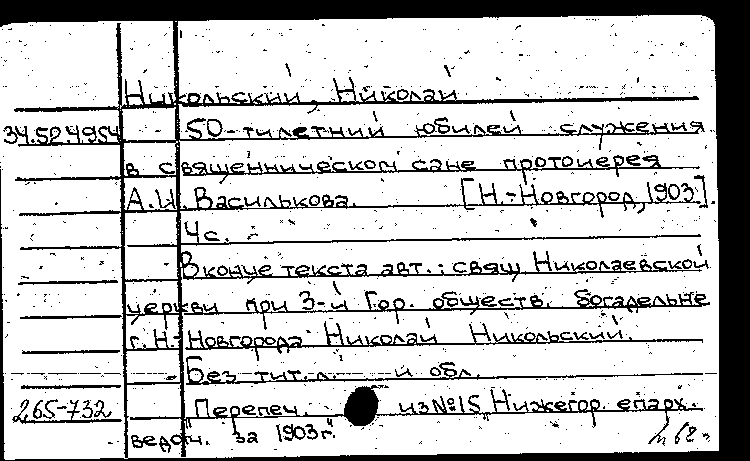 Никольский, Николай
34.52.4954 50-тилетний юбилей служения
в священническом сане протоиерея
А.И. Василькова. [Н.-Новгород, 1903].
4 с.
В конце текста авт.: свящ. Николаевской
церкви при 3-й Гор. обществ. богадельне
г. Н.-Новгорода Николай Никольский.
Без тит. л. и обл.
265-732 Перепеч. из №15 „Нижегор. епарх.
ведом. за 1903г."